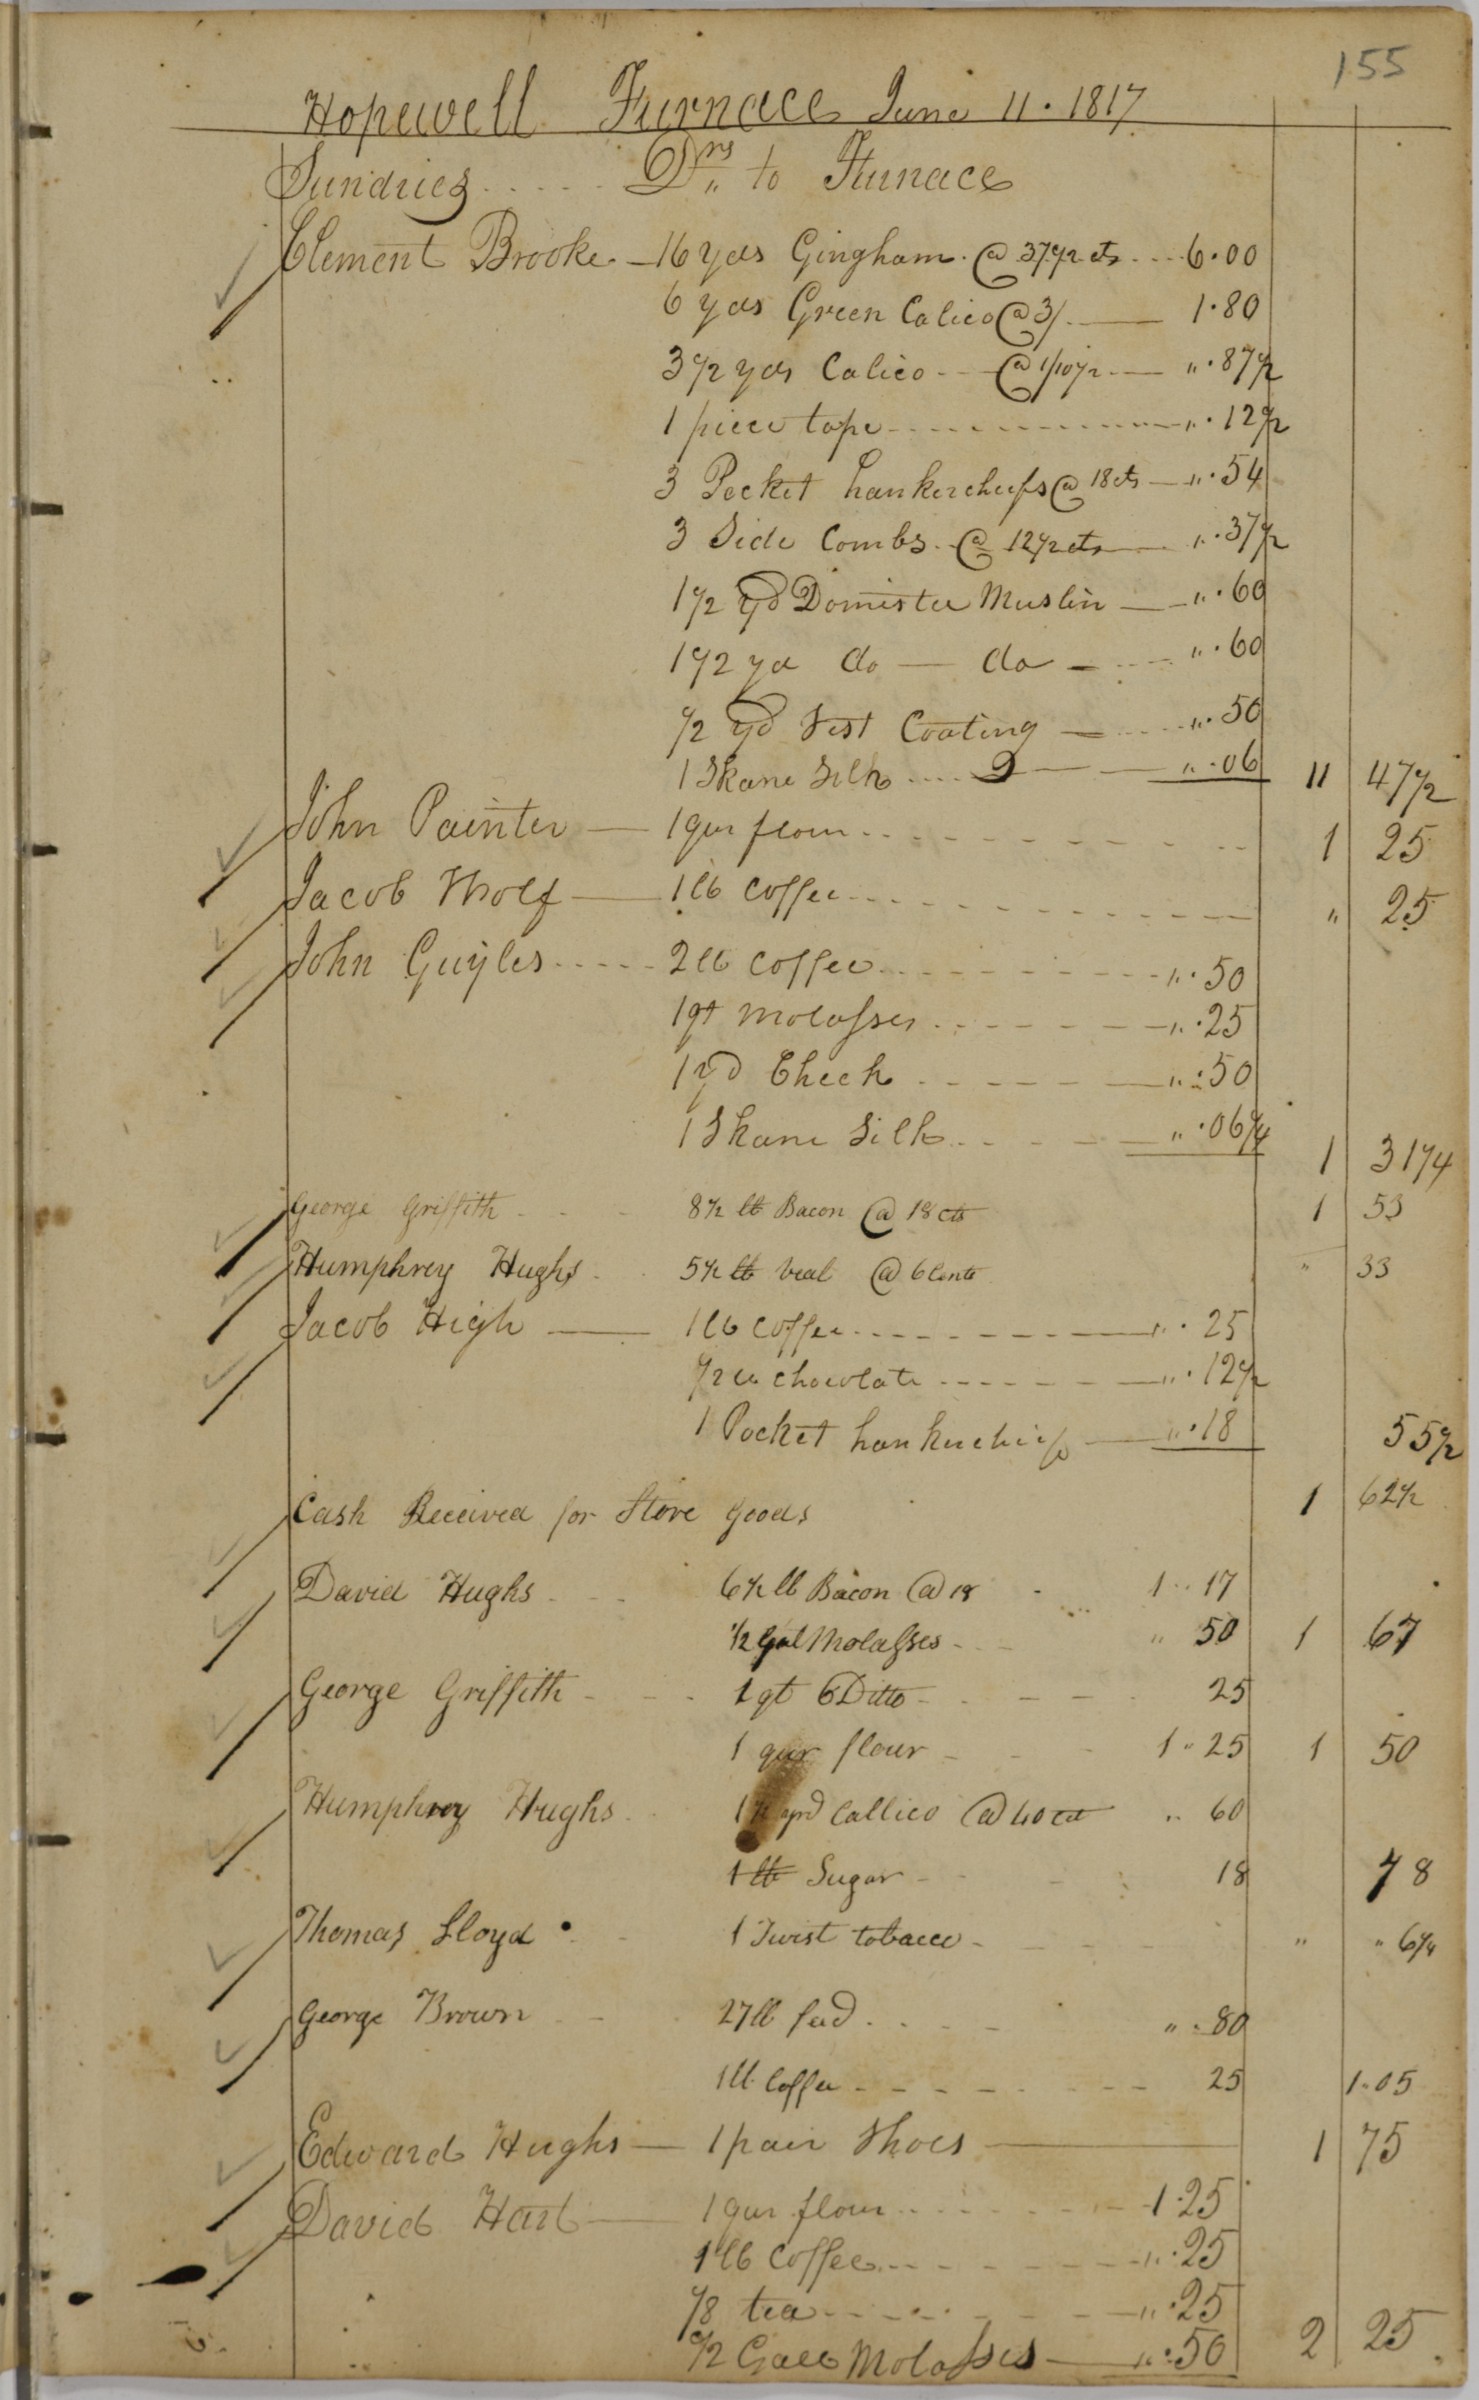 155
Hopewell Furnace June 11. 1817
Sundries ..... Drs to Furnace
Clement Brooke. — 16 yds Gingham. @ 37 1/2 cts .... 6.00
6 yds Green Calico @ 3/. — 1.80
3 1/2 yds Calico -- @ 1/10 1/2 — ".87 1/2
1 piece tape ---------- ".12 1/2
3 Pocket hankercheifs @ 18 cts — ".54
3 Side Combs. @ 12 1/2 cts — ".37 1/2
1 1/2 yd Domistic Muslin — ".60
1 1/2 yd do — do — ".60
1/2 yd Vest Coating — ".50
1 Skane Silk .... — ".06 11 47 1/2
John Painter — 1 qur flour ......... 1 25
Jacob Wolf — 1 lb Coffee ......... " 25
John Guyles ..... 2 lb Coffee ......... ".50
1 qt Molasses ....... ".25
1 yd Check ..... ".50
1 Skane Silk .... ".06 1/4 1 31 1/4
George Griffith - - - 8 1/2 lb Bacon @ 18 cts 1 53
Humphrey Hughs - - 5 1/2 lb Veal @ 6 Cents " 33
Jacob High — 1 lb Coffee ......... ".25
1/2 lb Chocolate ...... ".12 1/2
1 Pocket hankercheif — ".18 55 1/2
Cash Received for Store goods 1 62 1/2
David Hughs - - - 6 1/2 lb Bacon @ 18 - 1..17
1/2 Gal Molasses - - " 50 1 67
George Griffith - - - 1 qt Ditto - - - - 25
1 qur flour - - - 1 " 25 1 50
Humphrey Hughs - - 1 1/2 yrd Callico @ 40 cts .. 60
1 lb Sugar - - - 18 78
Thomas Lloyd - - 1 Twist tobacco - - - - " " 6 1/4
George Brown - - 27 lb feed .... " . 80
1 lb Coffee - - - - - - 25 1.05
Edward Hughs — 1 pair Shoes — 1 75
David Hart — 1 qur flour ....... 1.25
1 lb Coffee ....... ".25
1/8 tea ....... ".25
1/2 Gall Molasses — ".50 2 25